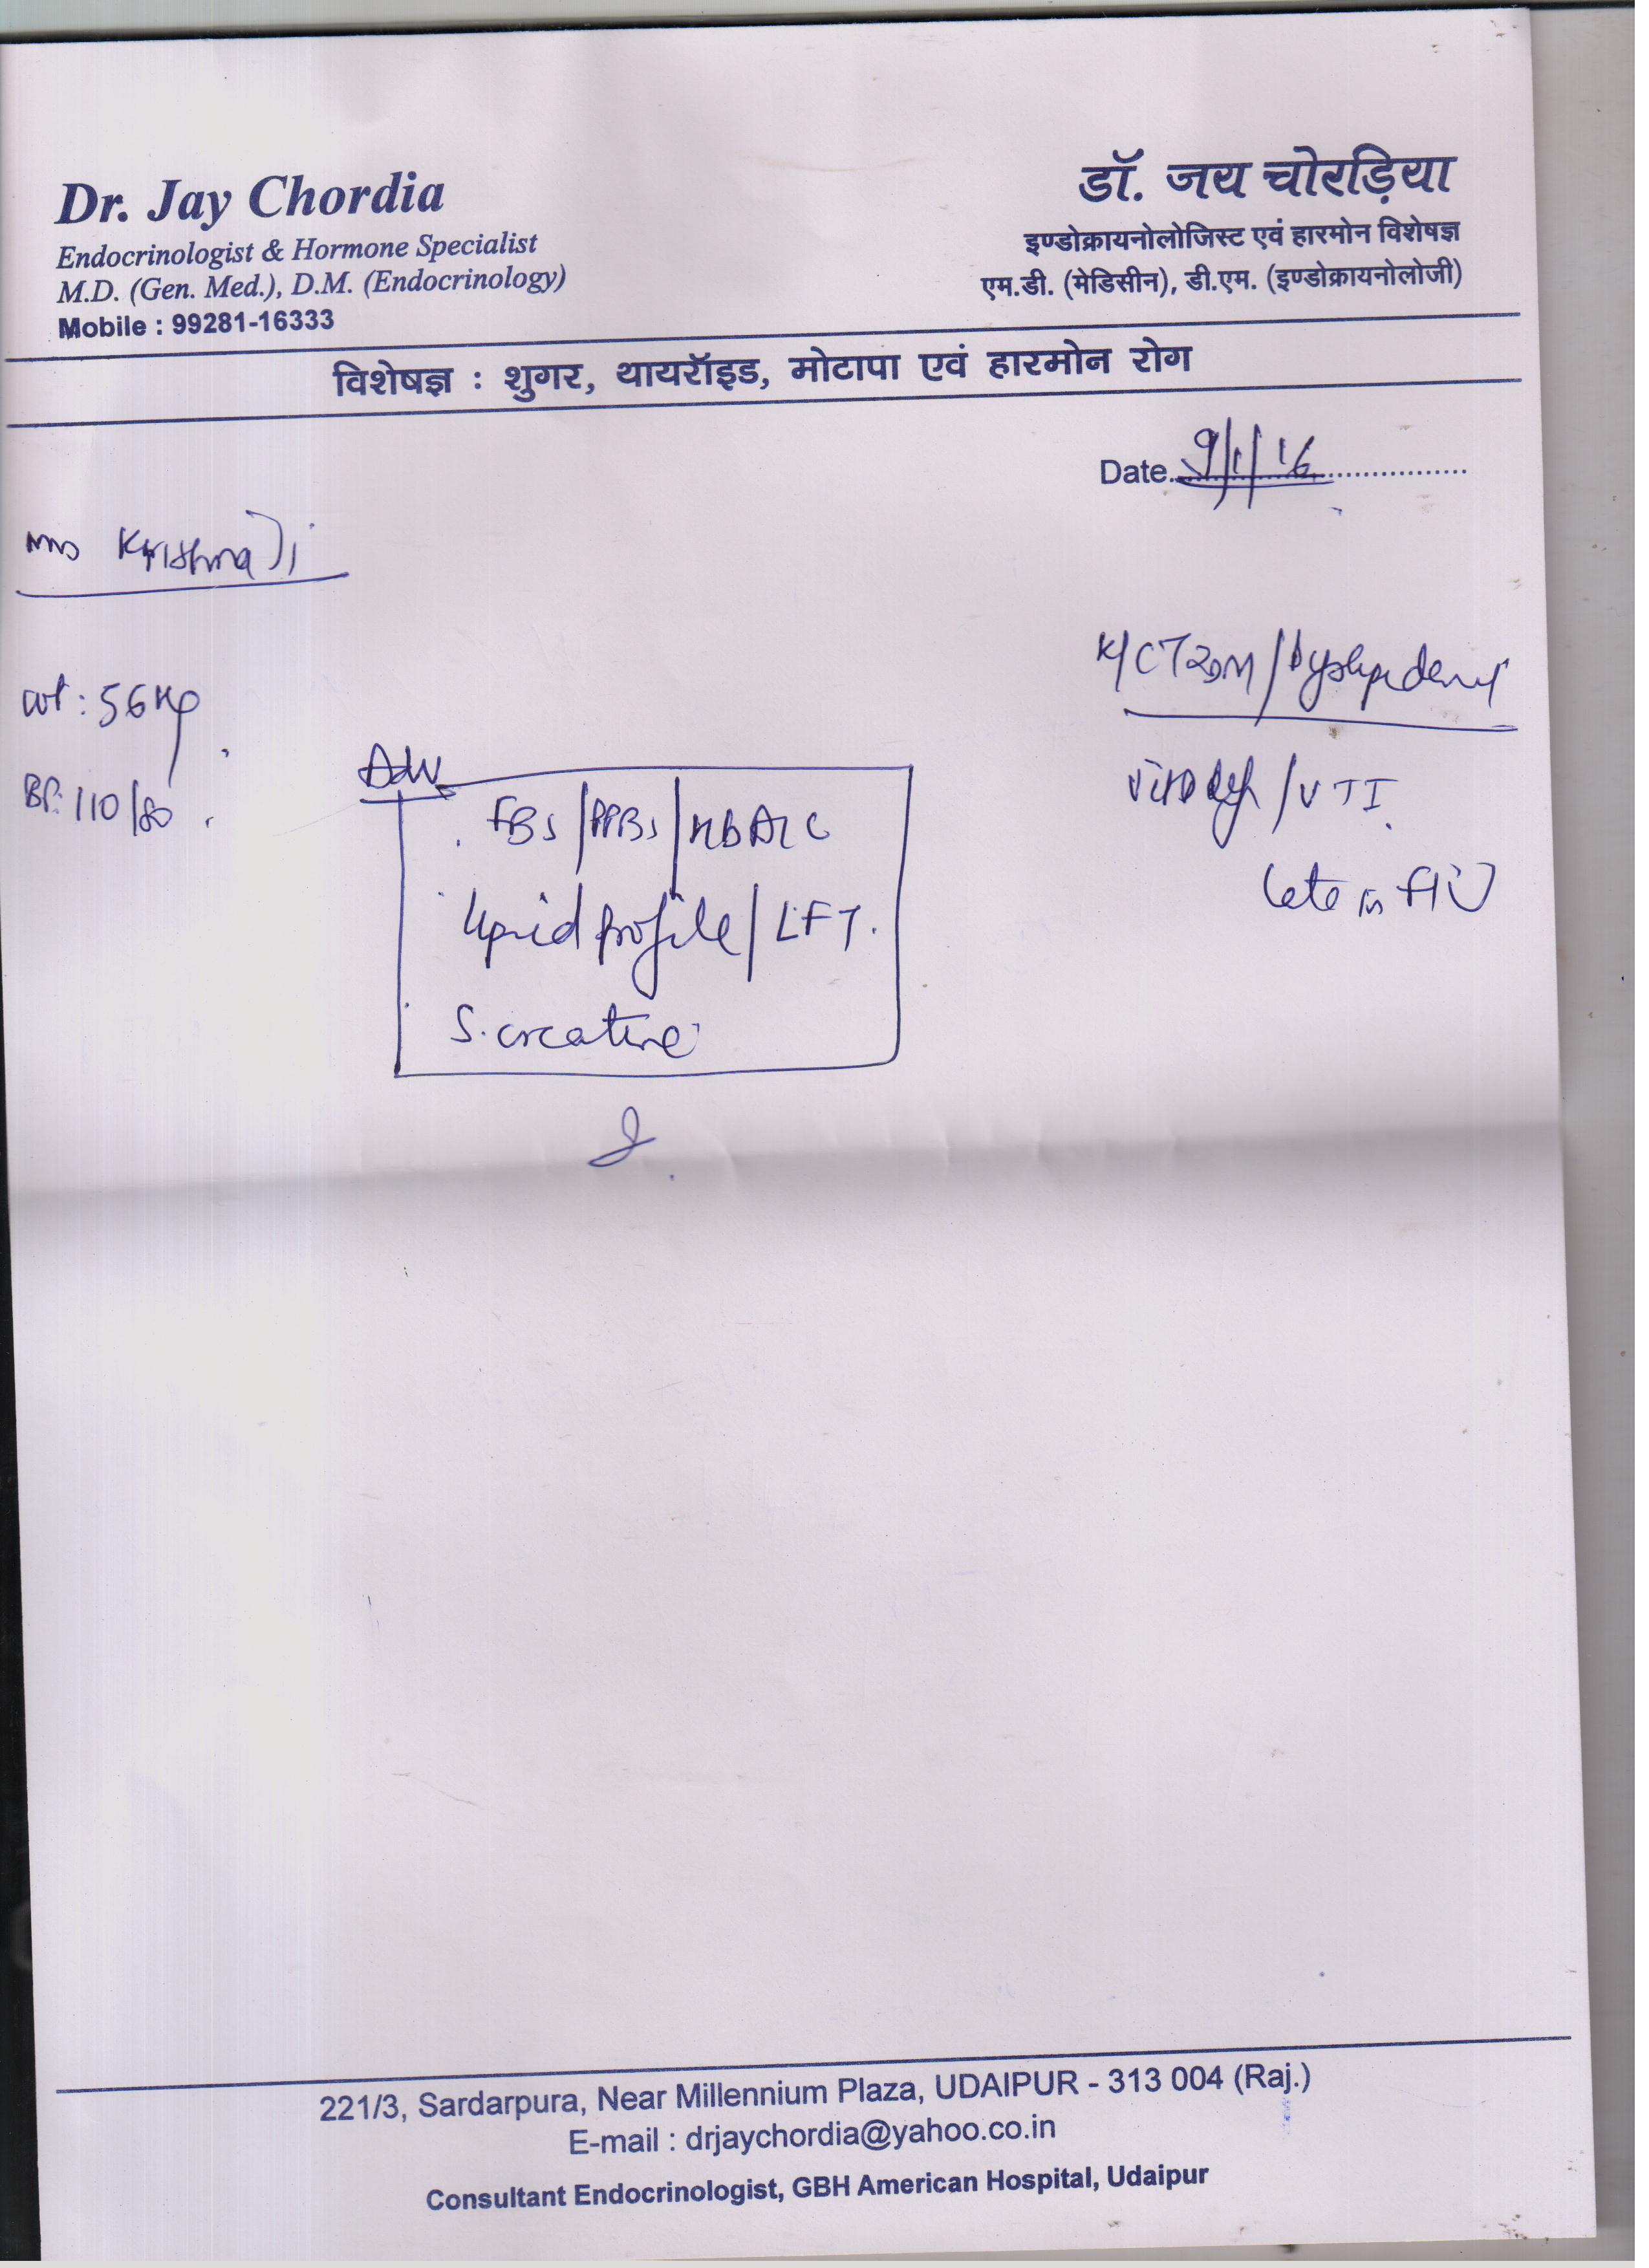 Dr. Jay Chordia
Endocrinologist & Hormone Specialist
M.D. (Gen. Med.), D.M. (Endocrinology)
Mobile : 99281-16333
डॉ. जय चोरड़िया
इण्डोक्रायनोलोजिस्ट एवं हारमोन विशेषज्ञ
एम.डी. (मेडिसीन), डी.एम. (इण्डोक्रायनोलोजी)
विशेषज्ञ : शुगर, थायरॉइड, मोटापा एवं हारमोन रोग
Date 9/1/16
Krishna Ji
wt: 56 Kg
BP: 110/80
K/C T2DM / Dyslipidemi
Vit D def / UTI
Late in F/U
Adv
FBS / PPBS / HbA1C
lipid profile / LFT.
S. creatine
221/3, Sardarpura, Near Millennium Plaza, UDAIPUR - 313 004 (Raj.)
E-mail : drjaychordia@yahoo.co.in
Consultant Endocrinologist, GBH American Hospital, Udaipur